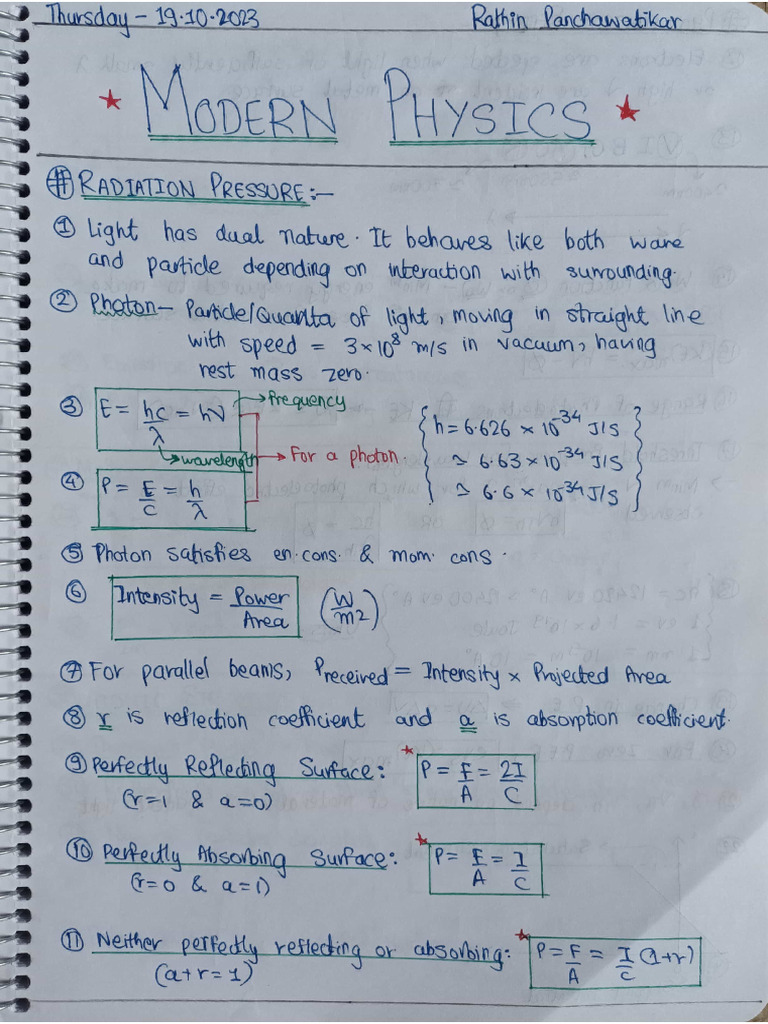 Thursday - 19.10.2023 Rathin Panchawatikar
★ MODERN PHYSICS ★
# RADIATION PRESSURE:-
① Light has dual nature. It behaves like both wave
and particle depending on interaction with surrounding.
② Photon - Particle/Quanta of light, moving in straight line
with speed = 3×10⁸ m/s in vacuum, having
rest mass zero.
③ E = hc/λ = hν → frequency
→ wavelength
→ For a photon.
{ h = 6.626 × 10⁻³⁴ J/S
≃ 6.63 × 10⁻³⁴ J/S
≃ 6.6 × 10⁻³⁴ J/S }
④ P = E/C = h/λ
⑤ Photon satisfies en. cons. & mom. cons.
⑥ Intensity = Power/Area (W/m²)
⑦ For parallel beams, Preceived = Intensity × Projected Area
⑧ r is reflection coefficient and a is absorption coefficient.
⑨ Perfectly Reflecting Surface: ★ P = F/A = 2I/C
(r=1 & a=0)
⑩ Perfectly Absorbing Surface: ★ P = F/A = I/C
(r=0 & a=1)
⑪ Neither perfectly reflecting or absorbing: ★ P = F/A = I/C (1+r)
(a+r=1)